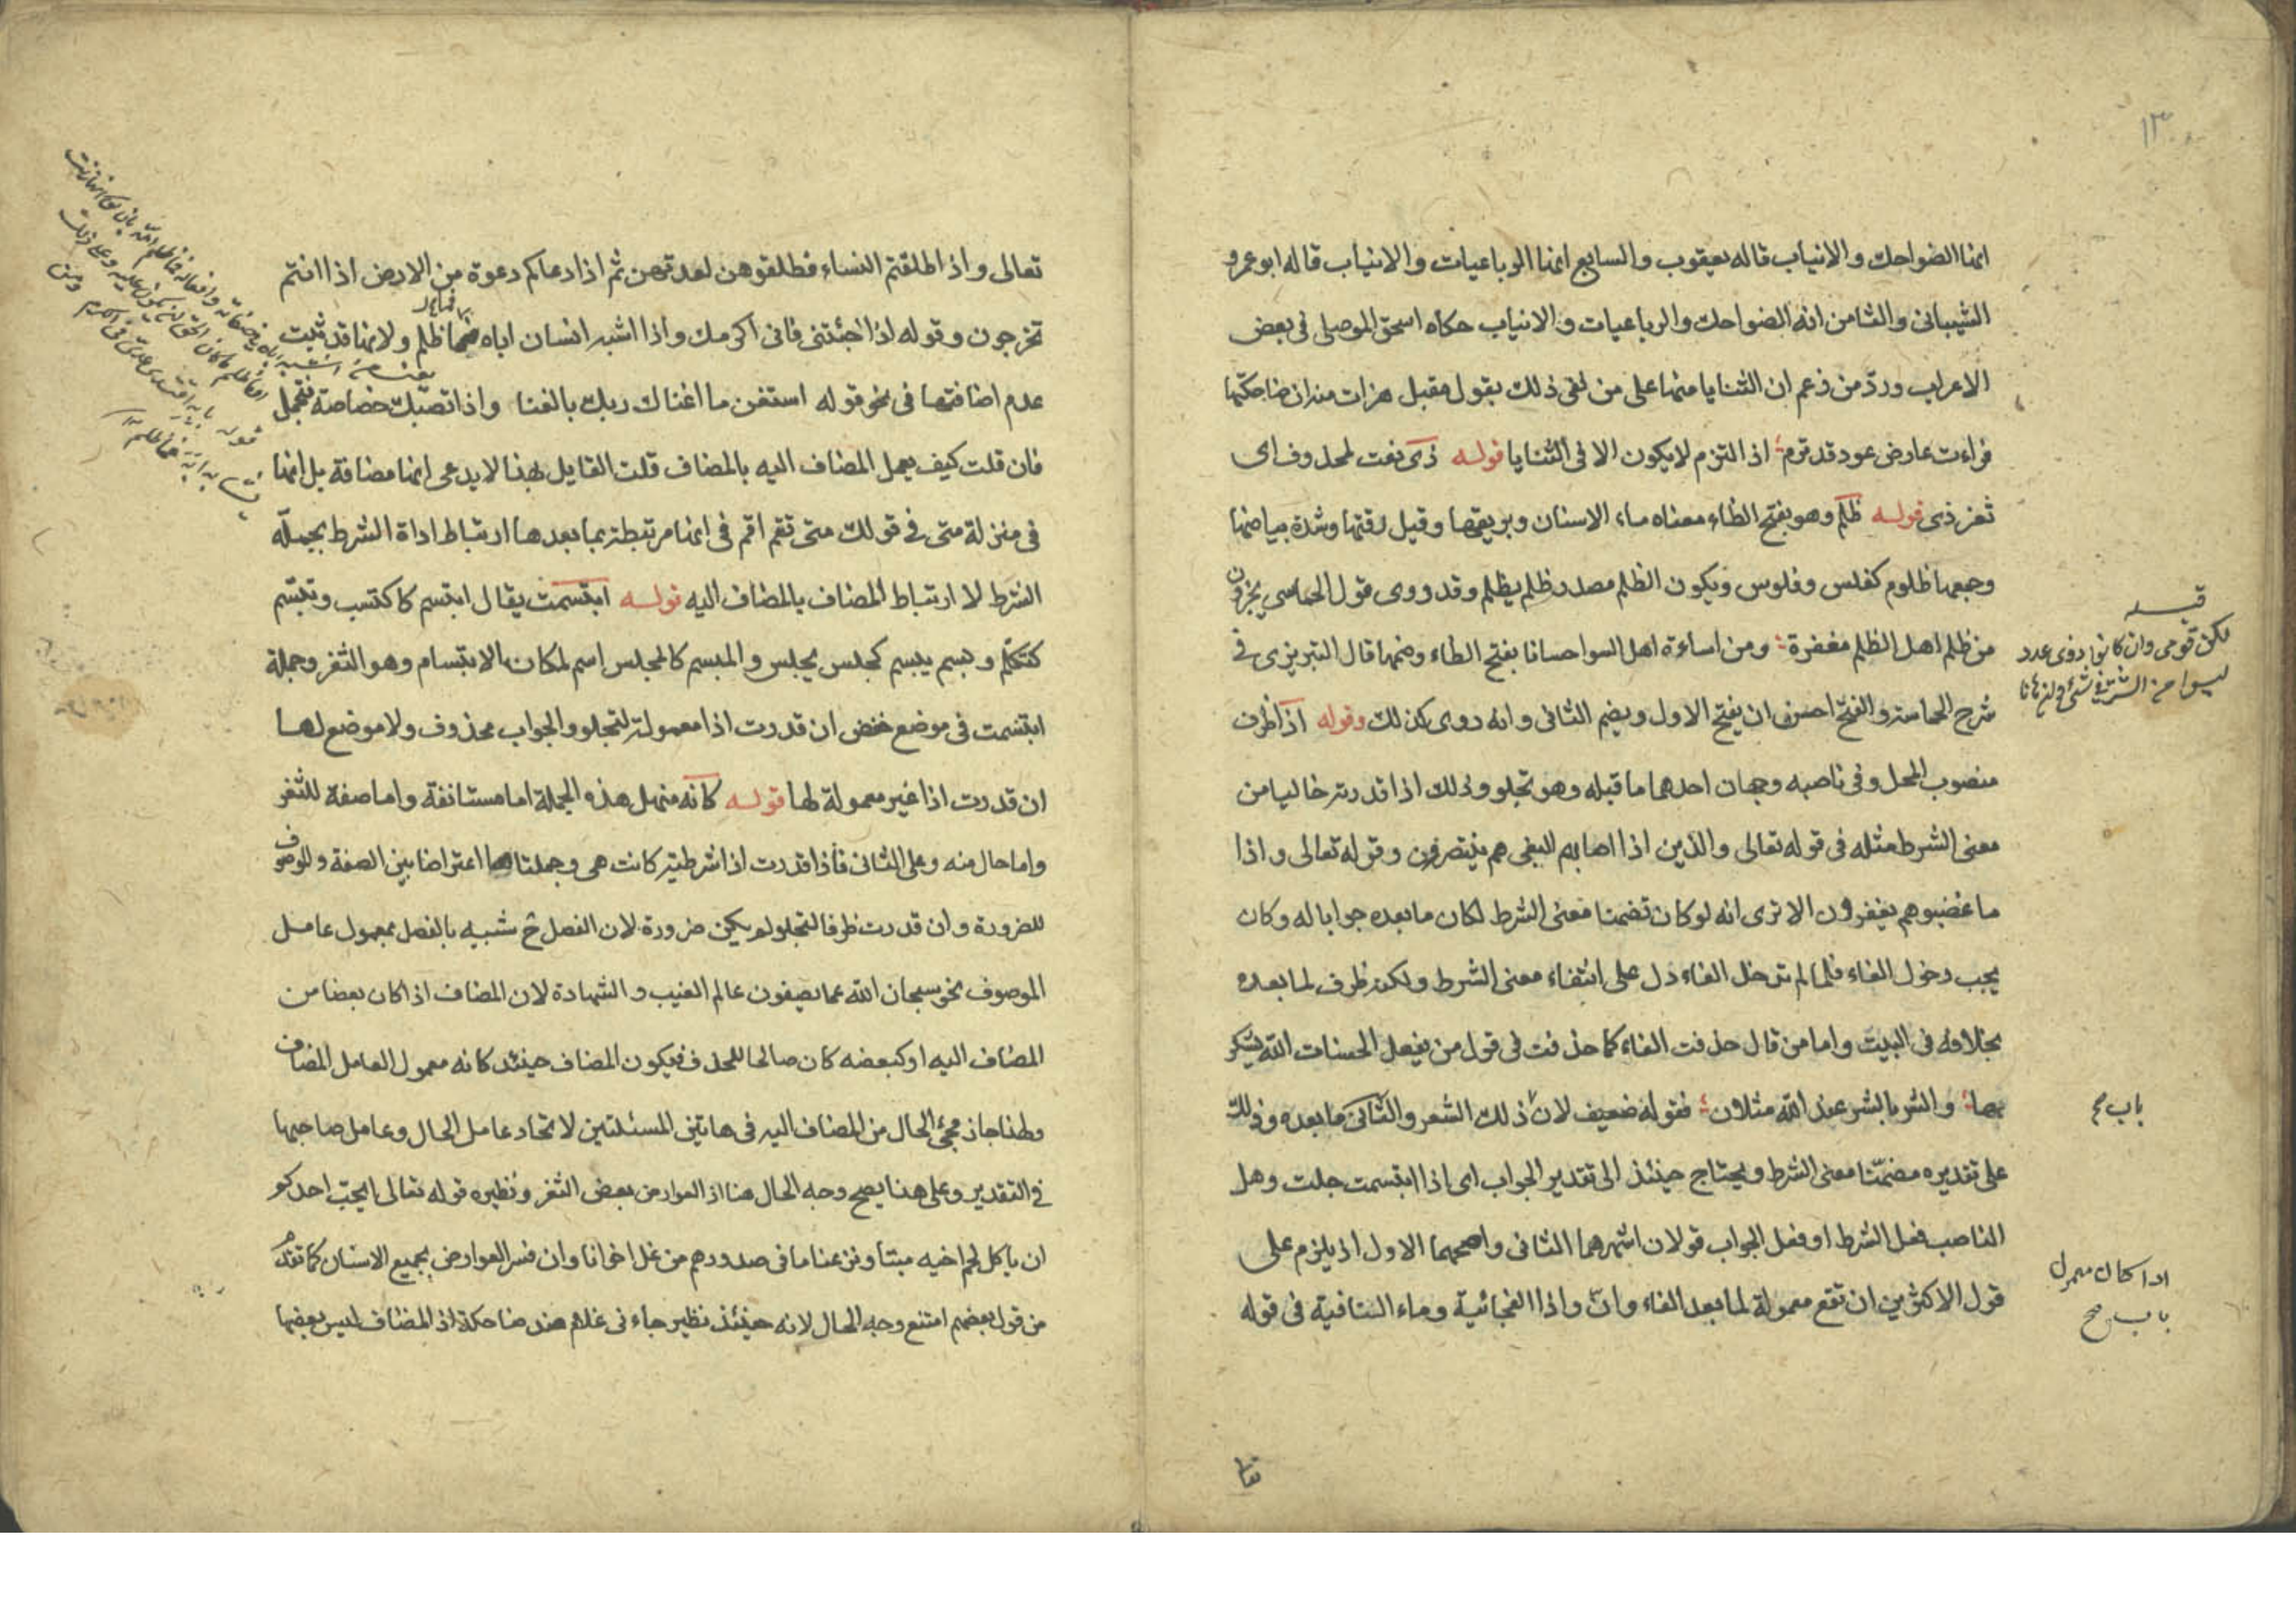 ١٣
انها الضواحك والانياب قاله يعقوب والسابع انها الرباعيات والانياب قاله ابو عمرو
الشيبانى والثامن انه الضواحك والرباعيات والانياب حكاه اسحق الموصلى فى بعض
الاعراب وردّ من زعم ان الثنايا منها على من نفى ذلك بقول مقبل هزات منه ان ضاحكتها
فراءت عارض عود قد ثرم اذ الثرم لا يكون الا فى الثنايا قوله ذى نعت لمحذوف اى
ثغر ذى قوله ظلم وهو بفتح الظاء معناه ماء الاسنان وبريقها وقيل رقتها وشدة بياضها
وجمعها ظلوم كفلس وفلوس ويكون الظلم مصدر ظلم يظلم وقد روى قول الحماسي يجزون
من ظلم اهل الظلم مغفرة ومن اساءة اهل السوا حسانا بفتح الظاء وضمها قال التبريزى فى
شرح الحماسة والفتح احسن ان يفتح الاول ويضم الثانى وانه روى كذلك وقوله اذ اظرف
منصوب المحل وفى ناصبه وجهان احدهما ما قبله وهو تجلو وذلك اذا قدرته خاليا من
معنى الشرط مثله فى قوله تعالى والذين اذا اصابهم البغى هم ينتصرون وقوله تعالى واذا
ما غضبوهم يغفرون الا ترى انه لو كان تضمنا معنى الشرط لكان ما بعده جوابا له وكان
يجب دخول الفاء فلما لم تدخل الفاء دل على انتفاء معنى الشرط ولكنه ظرف لما بعده
بخلافه فى البيت واما من قال حذفت الفاء كما حذفت فى قول من يفعل الحسنات الله يشكر
بها والشر بالشر عند الله مثلان فقوله ضعيف لان ذلك الشعر والثانى ما بعده وذلك
على تقديره مضمّنا معنى الشرط ويحتاج حينئذ الى تقدير الجواب اى اذا ابتسمت جلت وهل
الناصب فعل الشرط او فعل الجواب قولان اشهرهما الثانى واصحهما الاول اذ يلزم على
قول الاكثرين ان تقع معمولة لما بعد الفاء وانّ واذا الفجائية وماء النافية فى قوله
قبله
لكن قومى وان كانوا ذوى عدد
ليسوا من الشر فى شئ وان هانا
باب صح
اذا كان معمول
باب صح
تعالى واذا طلقتم النساء فطلقوهن لعدتهن ثم اذا دعاكم دعوة من الارض اذا انتم
تخرجون وقوله اذا جئتنى فانى اكرمك واذا اشبه انسان اباه فما ظلم ولانها قد ثبت
عدم اضافتها فى نحو قوله استغن ما اغناك ربك بالغنا واذا تصبك خصاصة فتجمل
فان قلت كيف يعمل المضاف اليه بالمضاف قلت القايل بهذا لا يدعى انها مضافة بل انها
فى منزلة متى فى قولك متى تقم اقم فى انها مرتبطة بما بعدها ارتباط اداة الشرط بجملة
الشرط لا ارتباط المضاف بالمضاف اليه قوله ابتسمت يقال ابتسم كاكتسب وتبسّم
كتكلّم وبسم يبسم كجلس يجلس والمبسم كالمجلس اسم لمكان الابتسام وهو الثغر وجملة
ابتسمت فى موضع خفض ان قدرت اذا معمولة لتجلو والجواب محذوف ولا موضع لها
ان قدرت اذا غير معمولة لها قوله كانه منهل هذه الجملة اما مستانفة واما صفة للثغر
واما حال منه وعلى الثانى فاذا قدرت اذا شرطية كانت هى وجملتاها اعتراضا بين الصفة والموصوف
للضرورة وان قدرت ظرفا لتجلو لم يكن ضرورة لان الفصل ح شبيه بالفصل بمعمول عامل
الموصوف نحو سبحان الله عما يصفون عالم الغيب والشهادة لان المضاف اذا كان بعضا من
المضاف اليه او كبعضه كان صالحا للحذف فيكون المضاف حينئذ كانه معمول العامل المضاف
ولهذا جاز مجئ الحال من المضاف اليه فى هاتين المسئلتين لاتحاد عامل الحال وعامل صاحبها
فى التقدير وعلى هذا يصح وجه الحال هنا اذ العوارض بعض الثغر ونظيره قوله تعالى ايحبّ احدكم
ان ياكل لحم اخيه ميتا ونزعنا ما فى صدورهم من غل اخوانا وان فسر العوارض بجميع الاسنان كما تقدم
من قول بعضهم امتنع وجه الحال لانه حينئذ نظير جاءنى غلام هند ضاحكة اذ المضاف ليس بعضها